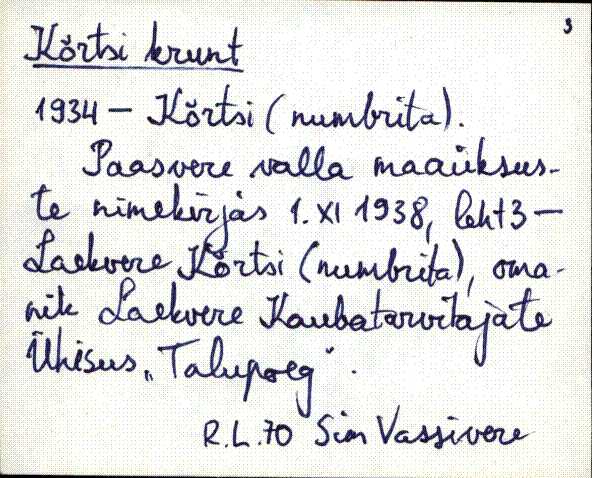 3
Kõrtsi krunt
1934 – Kõrtsi (numbrita).
Paasvere valla maaüksus-
te nimekirjas 1. XI 1938, leht 3 –
Laekvere Kõrtsi (numbrita), oma-
nik Laekvere Kaubatarvitajate
Ühisus „Talupoeg".
R.L.70 Sim Vassivere